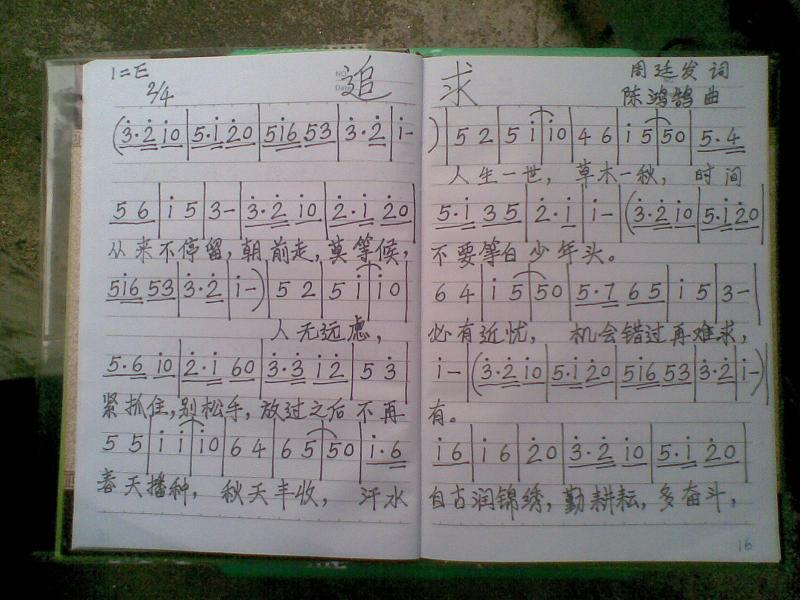 1=E 追 求 周廷发 词
2/4 陈鸿鹄 曲
(3·2 10 | 5·1 20 | 516 53 | 3·2 | 1- ) | 5 2 | 5 1 | 10 | 4 6 | 1 5 | 50 | 5·4
人生一世, 草木一秋, 时间
5 6 | 1 5 | 3- | 3·2 10 | 2·1 20 | 5·1 35 | 2·1 | 1- | (3·2 10 | 5·1 20
从来不停留, 朝前走, 莫等候, 不要等白少年头。
516 53 | 3·2 | 1- ) | 5 2 | 5 1 | 10 | 6 4 | 1 5 | 50 | 5·7 65 | 1 5 | 3-
人无远虑, 必有近忧, 机会错过再难求,
5·6 10 | 2·1 60 | 3·3 12 | 5 3 | 1- | (3·2 10 | 5·1 20 | 516 53 | 3·2 | 1- )
紧抓住, 别松手, 放过之后不再有。
5 5 | 1 1 | 10 | 6 4 | 6 5 | 50 | 1·6 | 16 | 1 6 | 20 | 3·2 10 | 5·1 20
春天播种, 秋天丰收, 汗水自古润锦绣, 勤耕耘, 多奋斗,
16